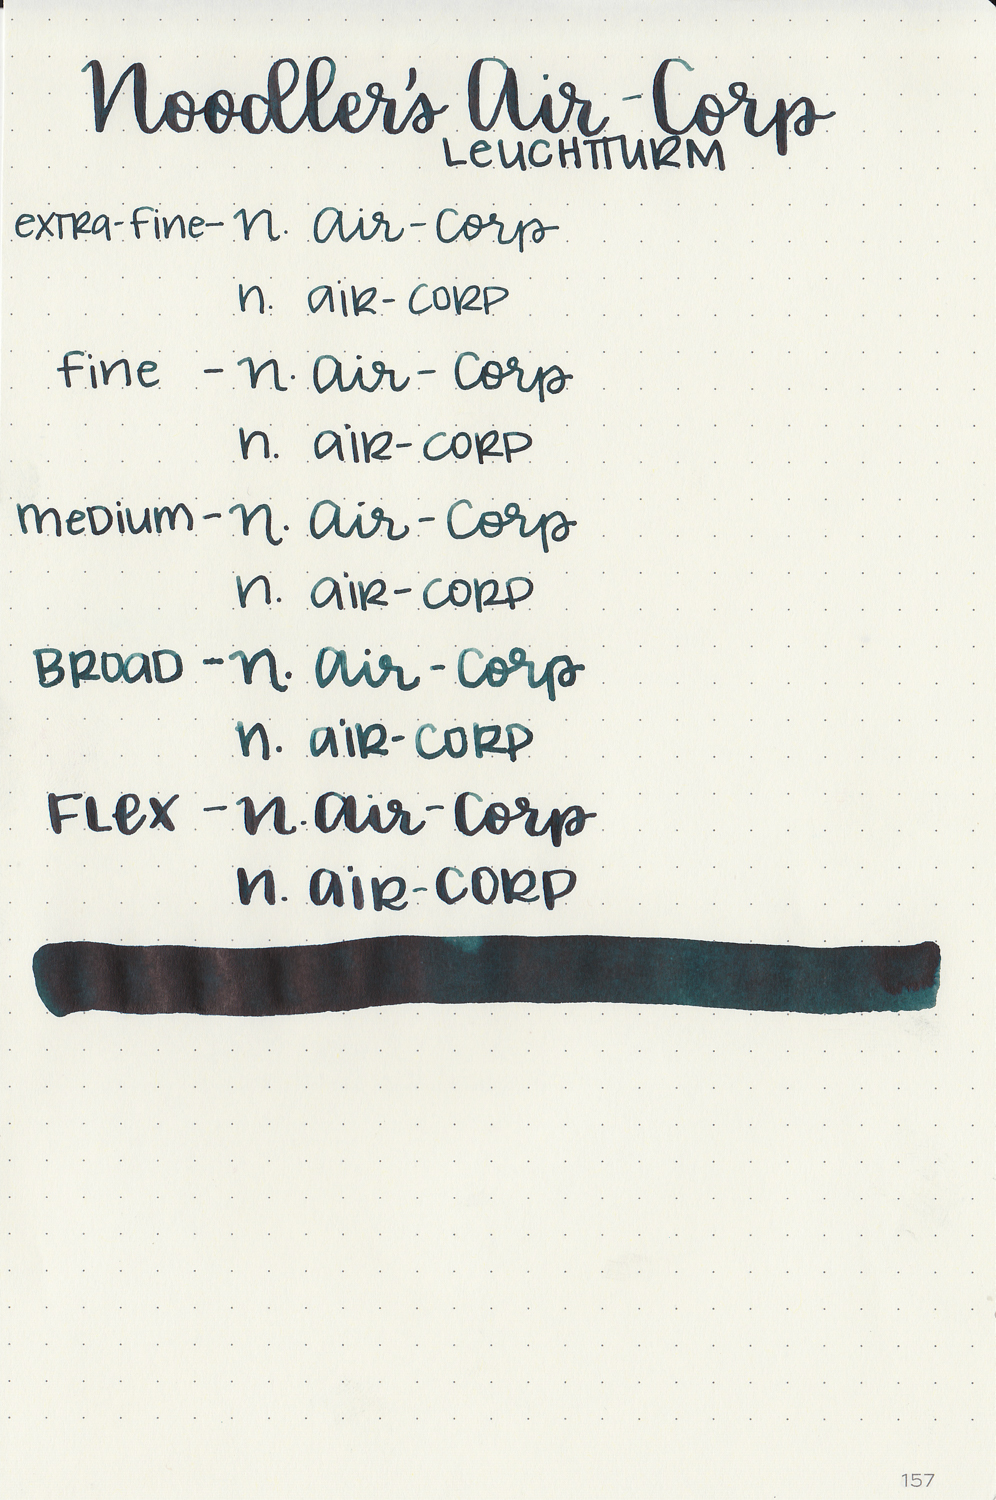 Noodler's Air-Corp
LEUCHTTURM
EXTRA-Fine - n. air-Corp
n. aiR-CORP
Fine - n. air-Corp
n. aiR-CORP
meDium - n. air-Corp
n. aiR-CORP
BROaD - n. air-Corp
n. aiR-CORP
FLex - n. air-Corp
n. aiR-CORP
157